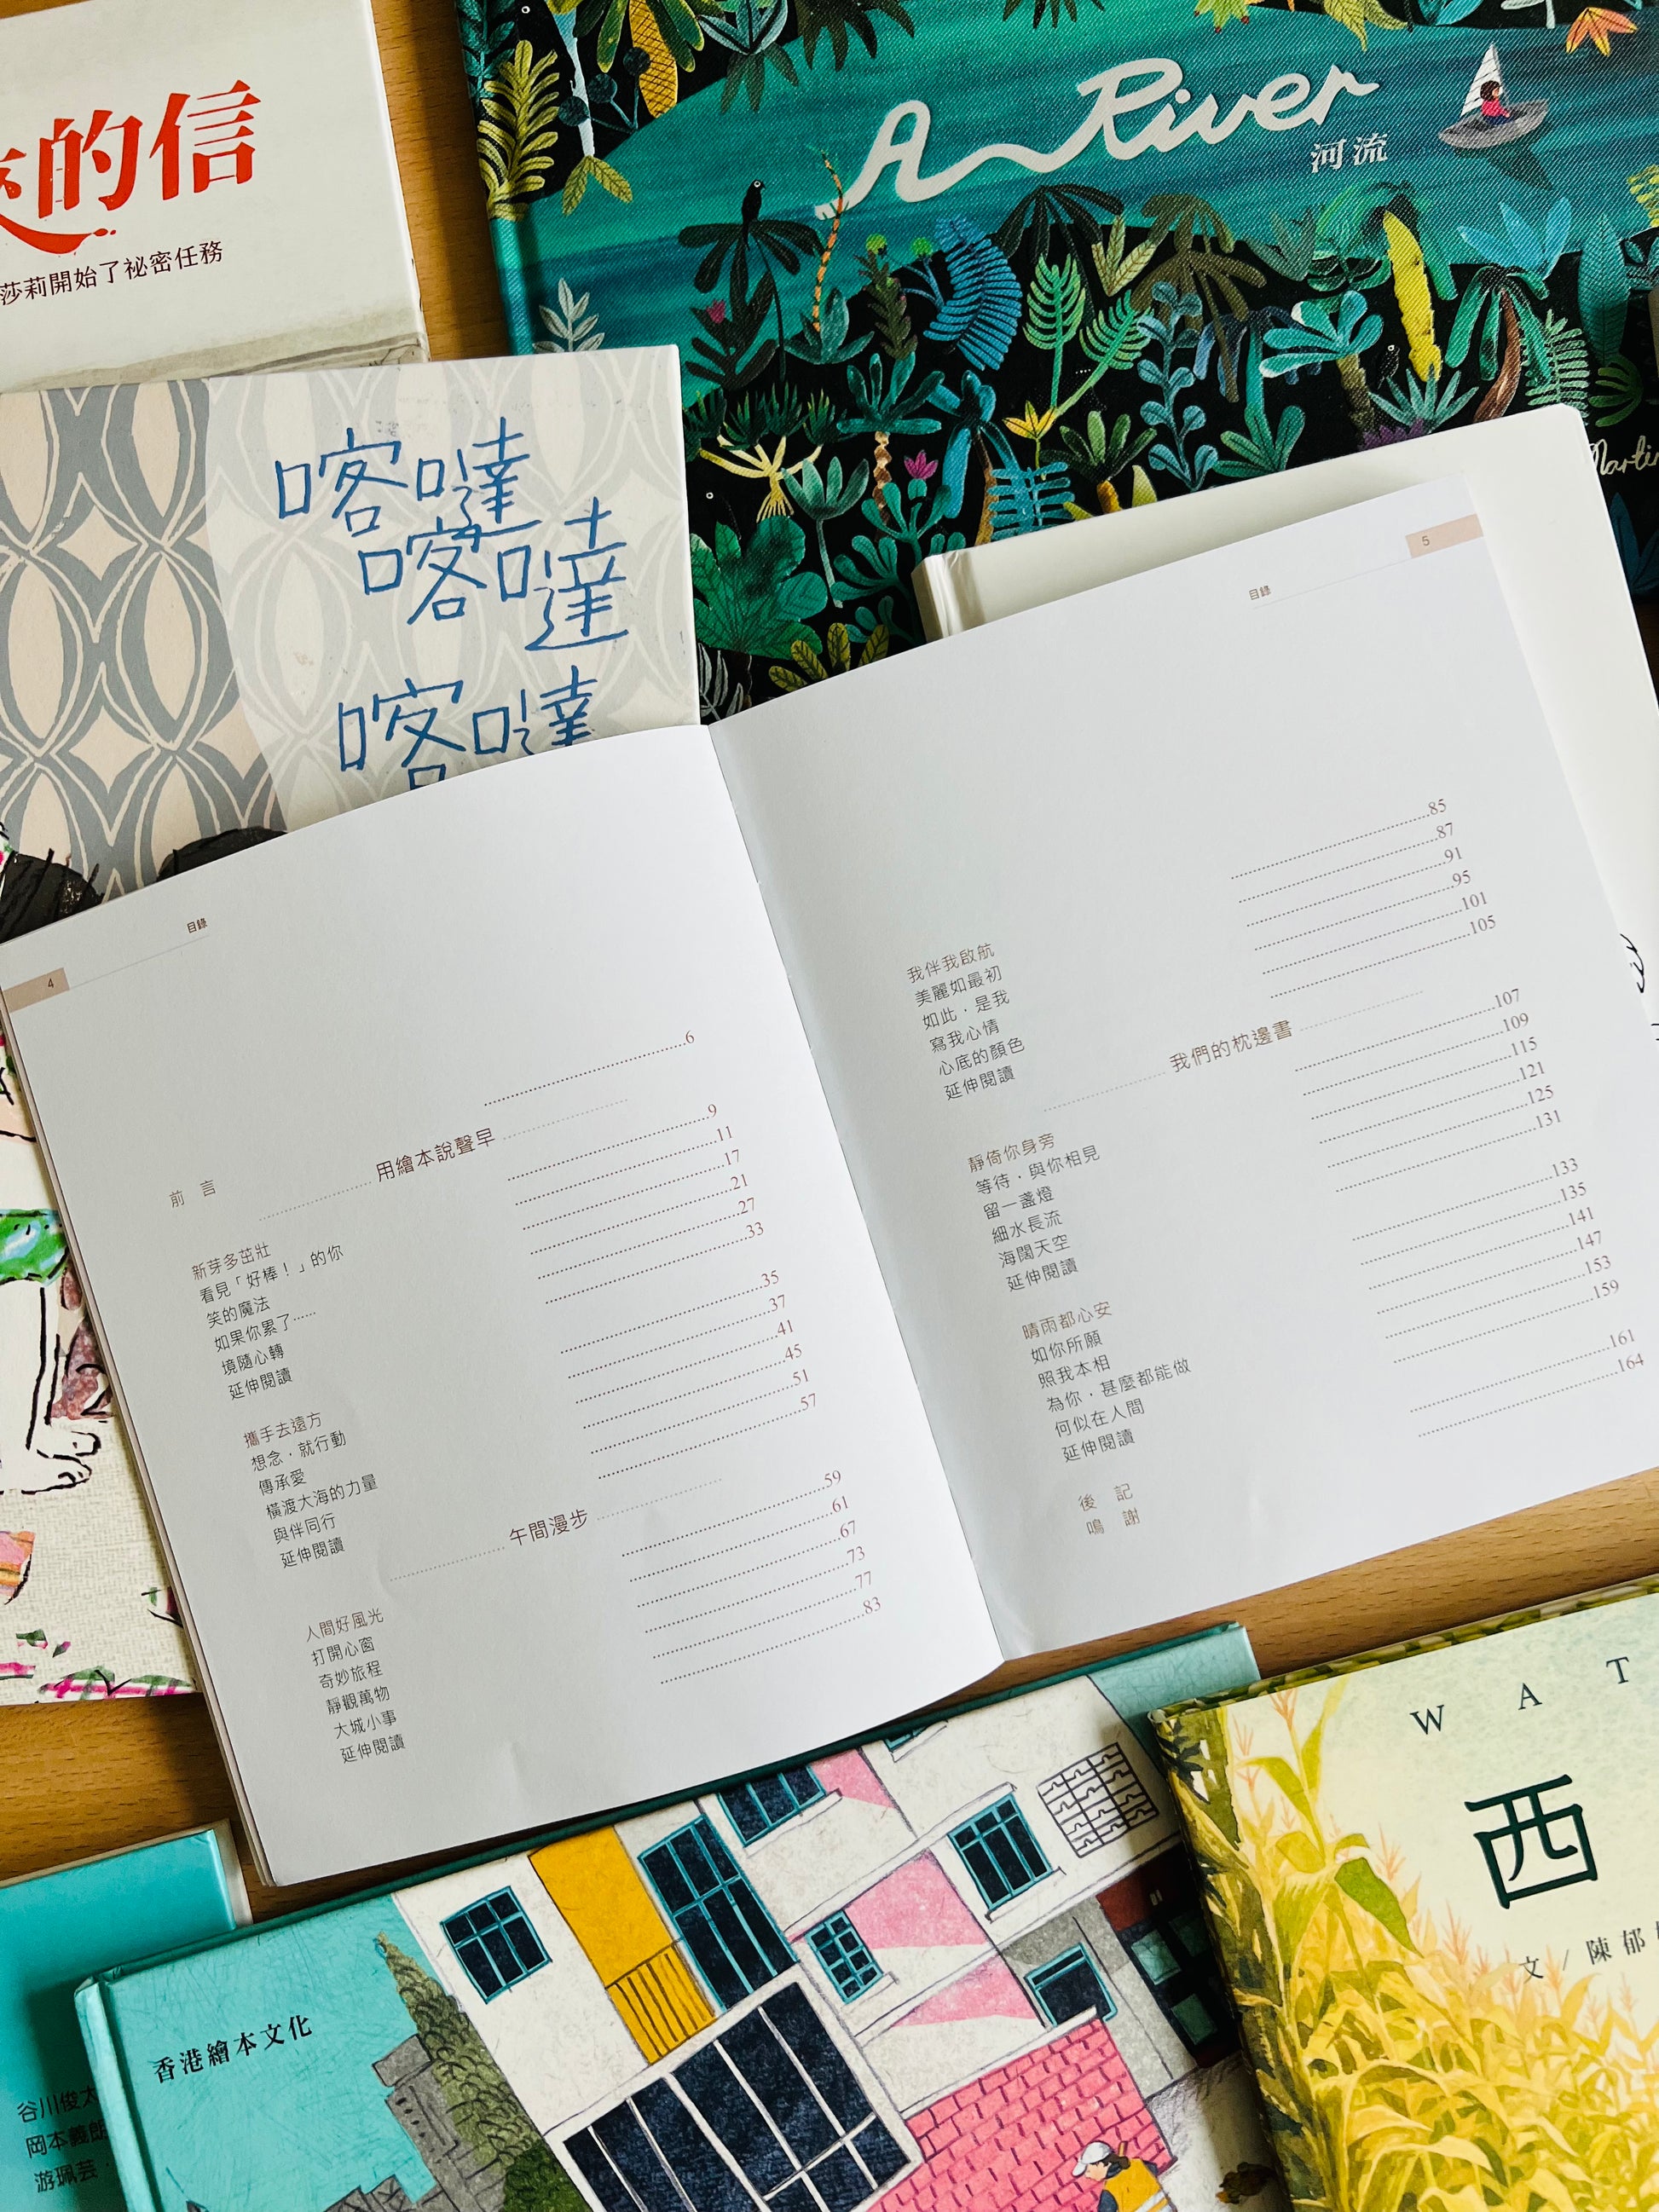 的信
莎莉開始了祕密任務
A River
河流
喀噠
喀噠
喀噠
目錄
4
前言 6
用繪本說聲早
新芽多茁壯 9
看見「好棒！」的你 11
笑的魔法 17
如果你累了…… 21
境隨心轉 27
延伸閱讀 33
攜手去遠方 35
想念，就行動 37
傳承愛 41
橫渡大海的力量 45
與伴同行 51
延伸閱讀 57
午間漫步
人間好風光 59
打開心窗 61
奇妙旅程 67
靜觀萬物 73
大城小事 77
延伸閱讀 83
目錄
5
我伴我啟航 85
美麗如最初 87
如此，是我 91
寫我心情 95
心底的顏色 101
延伸閱讀 105
我們的枕邊書
靜倚你身旁 107
等待，與你相見 109
留一盞燈 115
細水長流 121
海闊天空 125
延伸閱讀 131
晴雨都心安 133
如你所願 135
照我本相 141
為你，甚麼都能做 147
何似在人間 153
延伸閱讀 159
後記 161
鳴謝 164
香港繪本文化
谷川俊太
岡本義朗
游珮芸
WAT
西
文/陳郁